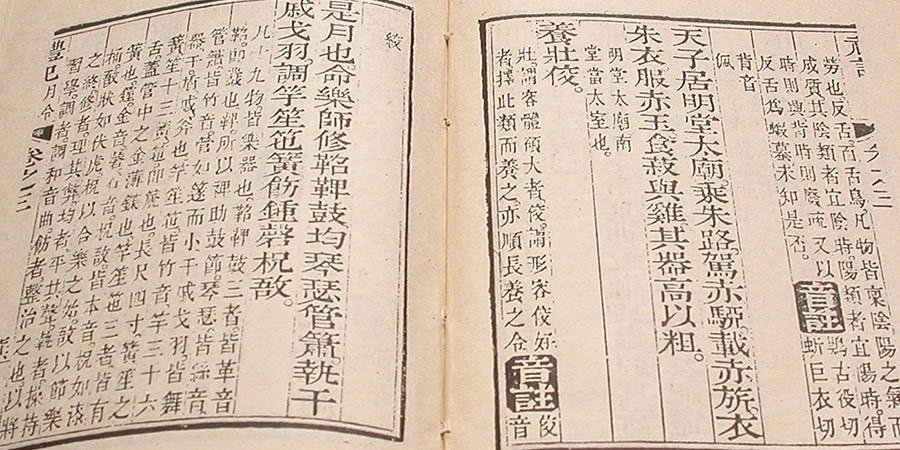 勞也。反舌百舌鳥凡物皆稟陰陽之氣而
成質其陰類者宜陰時陽類者宜陽時。得
時則興背時則廢疏又以
反舌爲蝦蟇未知是否。
音註
鵙古役切
蚚巨衣切
背音
佩
天子居明堂太廟乘朱路駕赤駵載赤旂衣
朱衣服赤玉食菽與雞其器高以粗。
明堂太廟南
堂當太室也。
養壯佼。
壯謂容體碩大者佼謂形容佼好
者擇此類而養之亦順長養之令
音註
佼
音
絞
是月也命樂師修鞀鞞鼓均琴瑟管簫執干
戚戈羽調竽笙竾簧飭鍾磬柷敔。
凡十九物皆樂器也。鞀鞞鼓三者皆革音
鞀即鼗也鞞所以裨助鼓節。琴瑟皆絲音
管簫皆竹音管如篴而小干戚戈羽皆舞
器干盾戚斧也竽笙竾皆竹音竽三十六
簧笙十三簧竾即篪也長尺四寸簧笙之
舌蓋管中之金薄鐷也竽笙竾三者皆有
簧也鍾金音磬石音柷敔皆木音柷如漆
桶敔狀如伏虎柷以合樂之始敔以節樂
之終修者理其弊均者平其聲執者操持
習學調者調和音曲飭者整治之也以將
禮記月令 卷之三